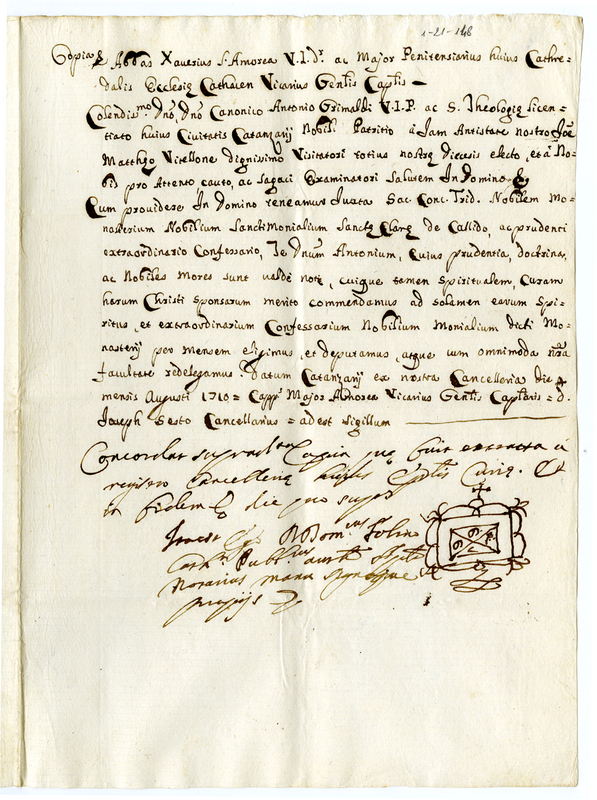 1-21-148
Copia & Abbas Xaverius S. Amorea V.I.Dr. ac Major Penitensiarius huius Cathre=
dalis Ecclesię Cathacen Vicarius Genlis Caplis —
Colendissmo. Dno, Dno Canonico Antonio Grimaldi V.I.P. ac S. Theologię licen=
tiato huius Civitatis Catanzarij Nobili Patritio à Jam Antistate nostro Joe
Matthęo Vitellone dignissimo Visitatori totius nostrę diecesis electo, et à No=
bis pro Attento, cauto, ac sagaci Examinatori salutem In Domino &
Cum providere In Domino teneamus Iuxta Sac. Conc. Trid. Nobilem Mo=
nasterium Nobilium SanctiMonialium Sanctę Clarę de Callido, ac prudenti
extraordinario Confessario, Te Dnum Antonium, Cuius prudentia, doctrina,
ac Nobiles Mores sunt valdè notę, cuique tamen spiritualem Curam
harum Christi sponsarum merito commendamus ad solamen earum Spi=
ritus, et extraordinarium Confessarium Nobilium Monialium dicti Mo=
nasterij per mensem eligimus, et deputamus, atque cum omnimoda nra
facultate redelegamus. Datum Catanzarij ex nostra Cancelleria die 4
mensis Augusti 1710 = Capps Major Amorea Vicarius Genlis Caplaris = d.
Joseph Sesto Cancellarius = adest sigillum
Concordat suprascta Copia quę fuit extracta à
registro Cancellerię huius Eplis Curię. Et
in fidem & die quo supra
Dom.cus
Cath. Publ.cus auctte
Notarius manu signoque
proprijs